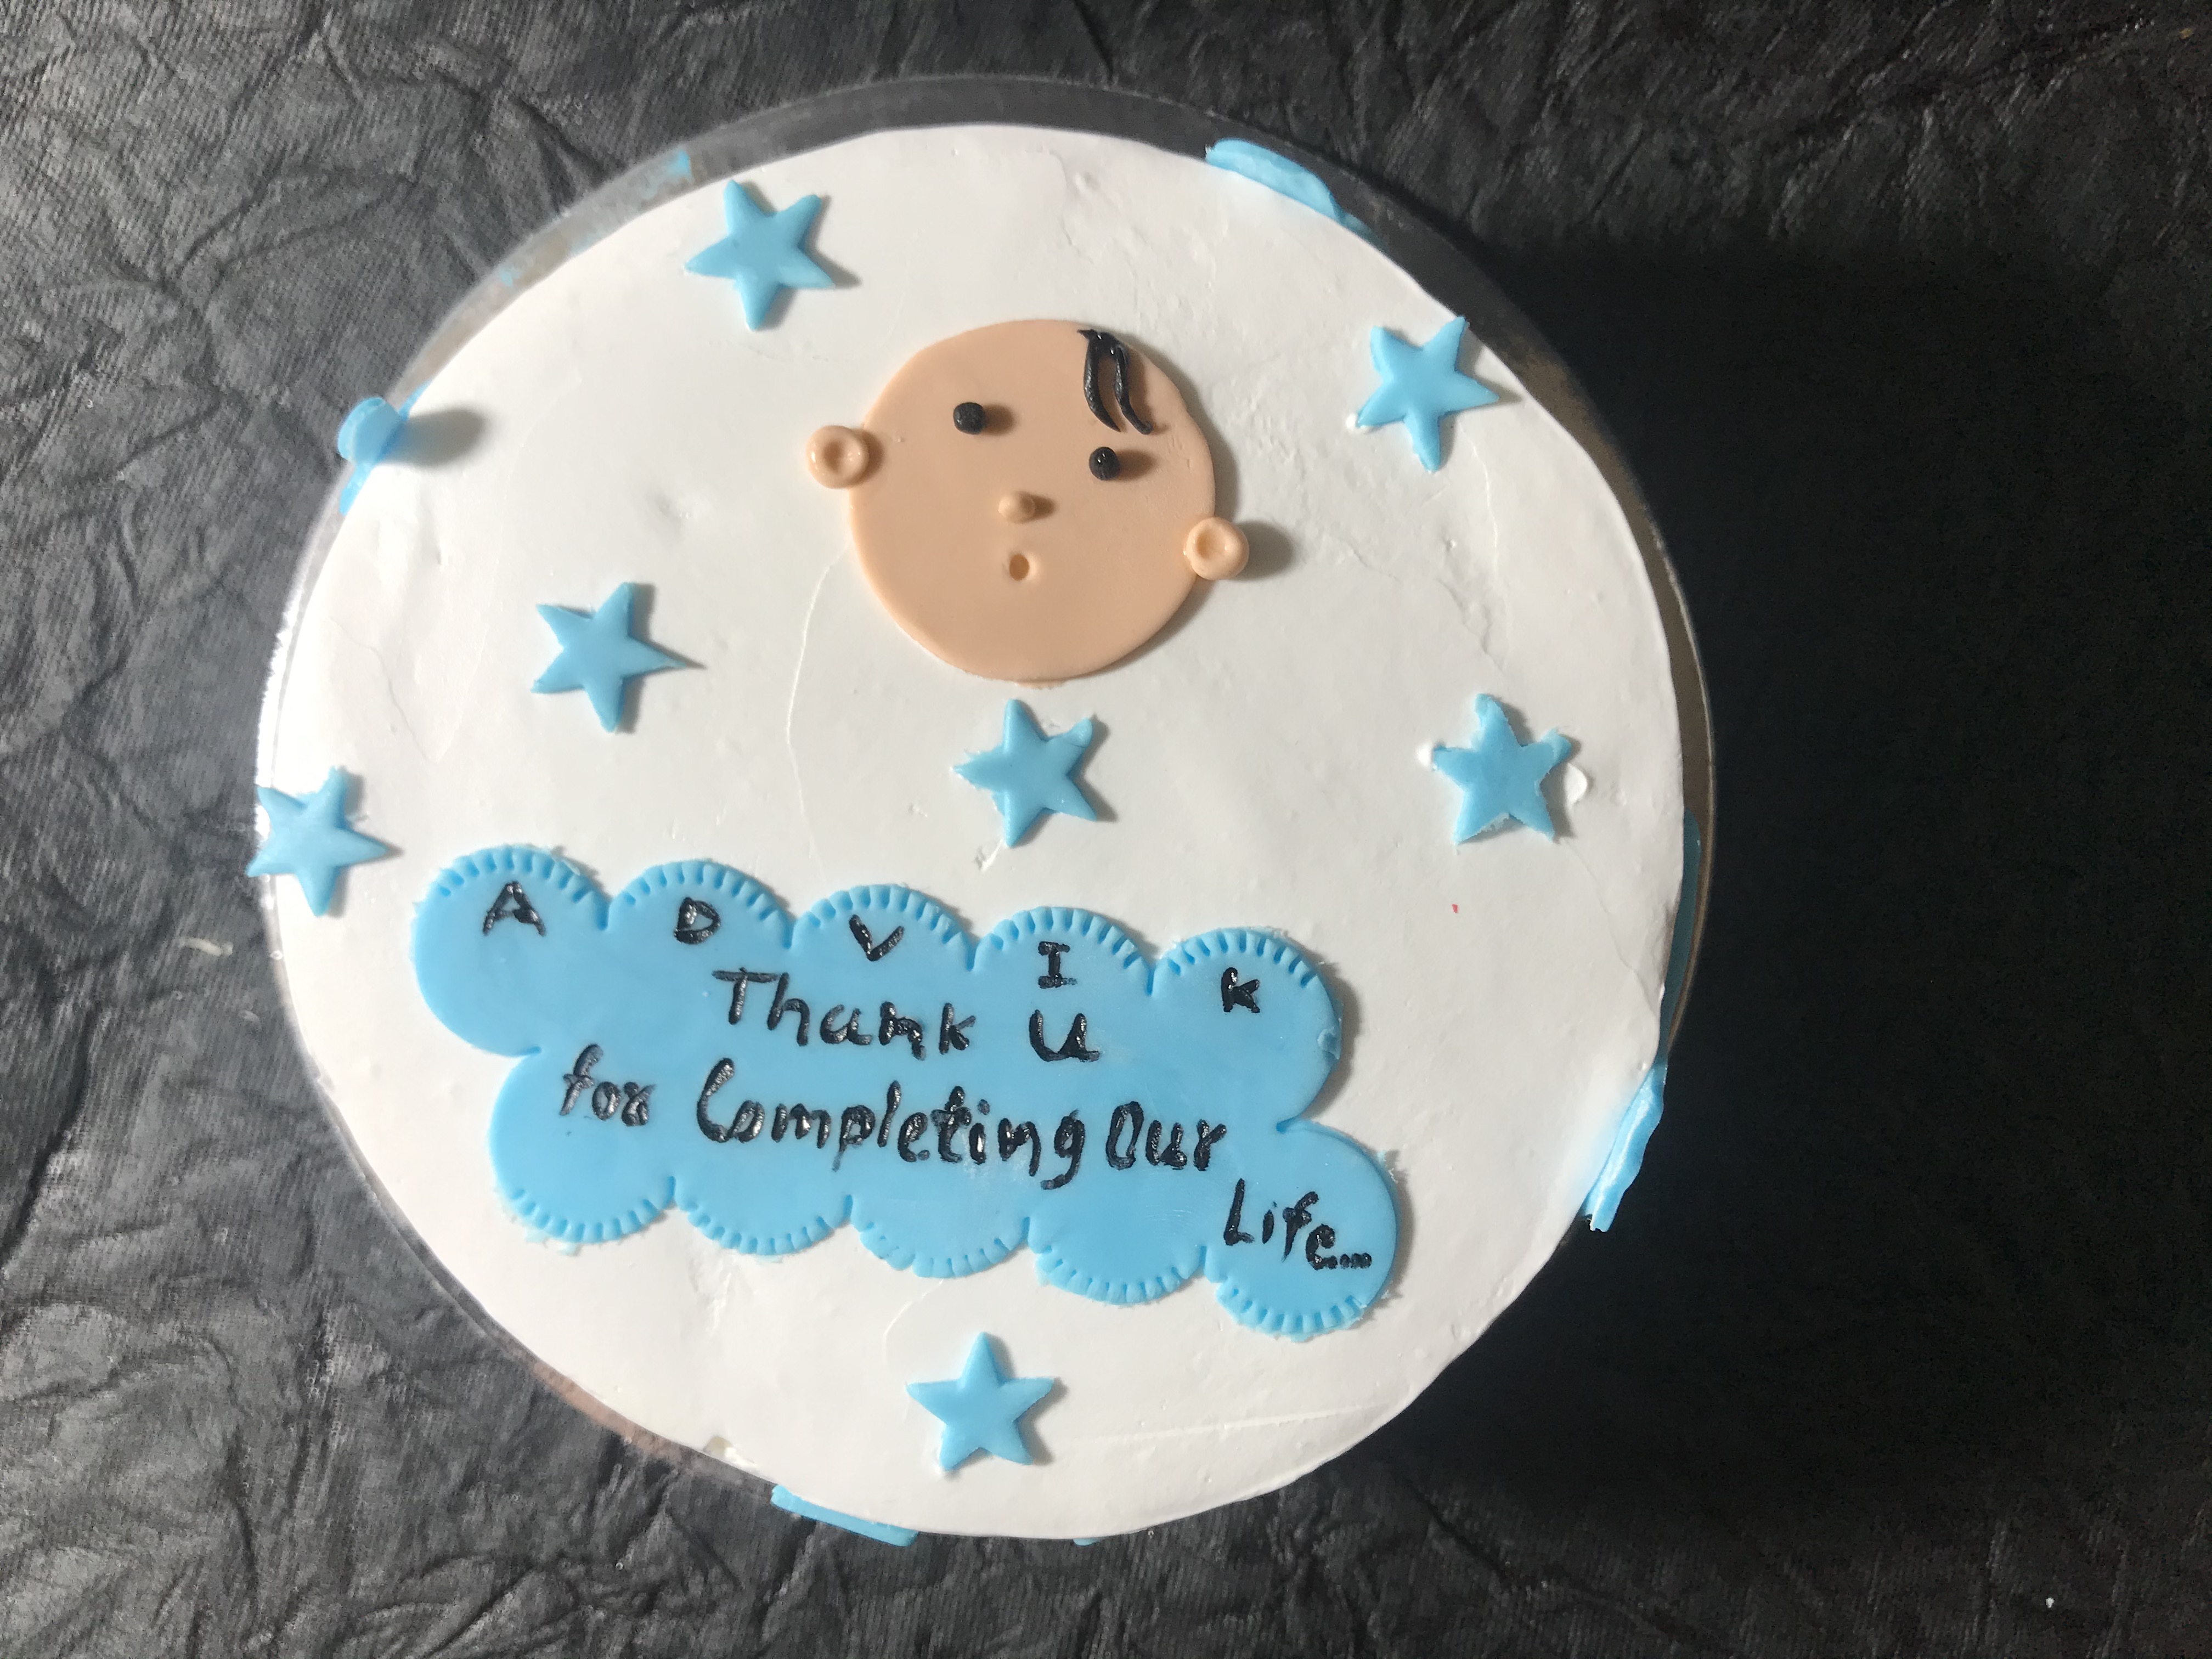 ADVIK
Thank u
for Completing Our
Life...